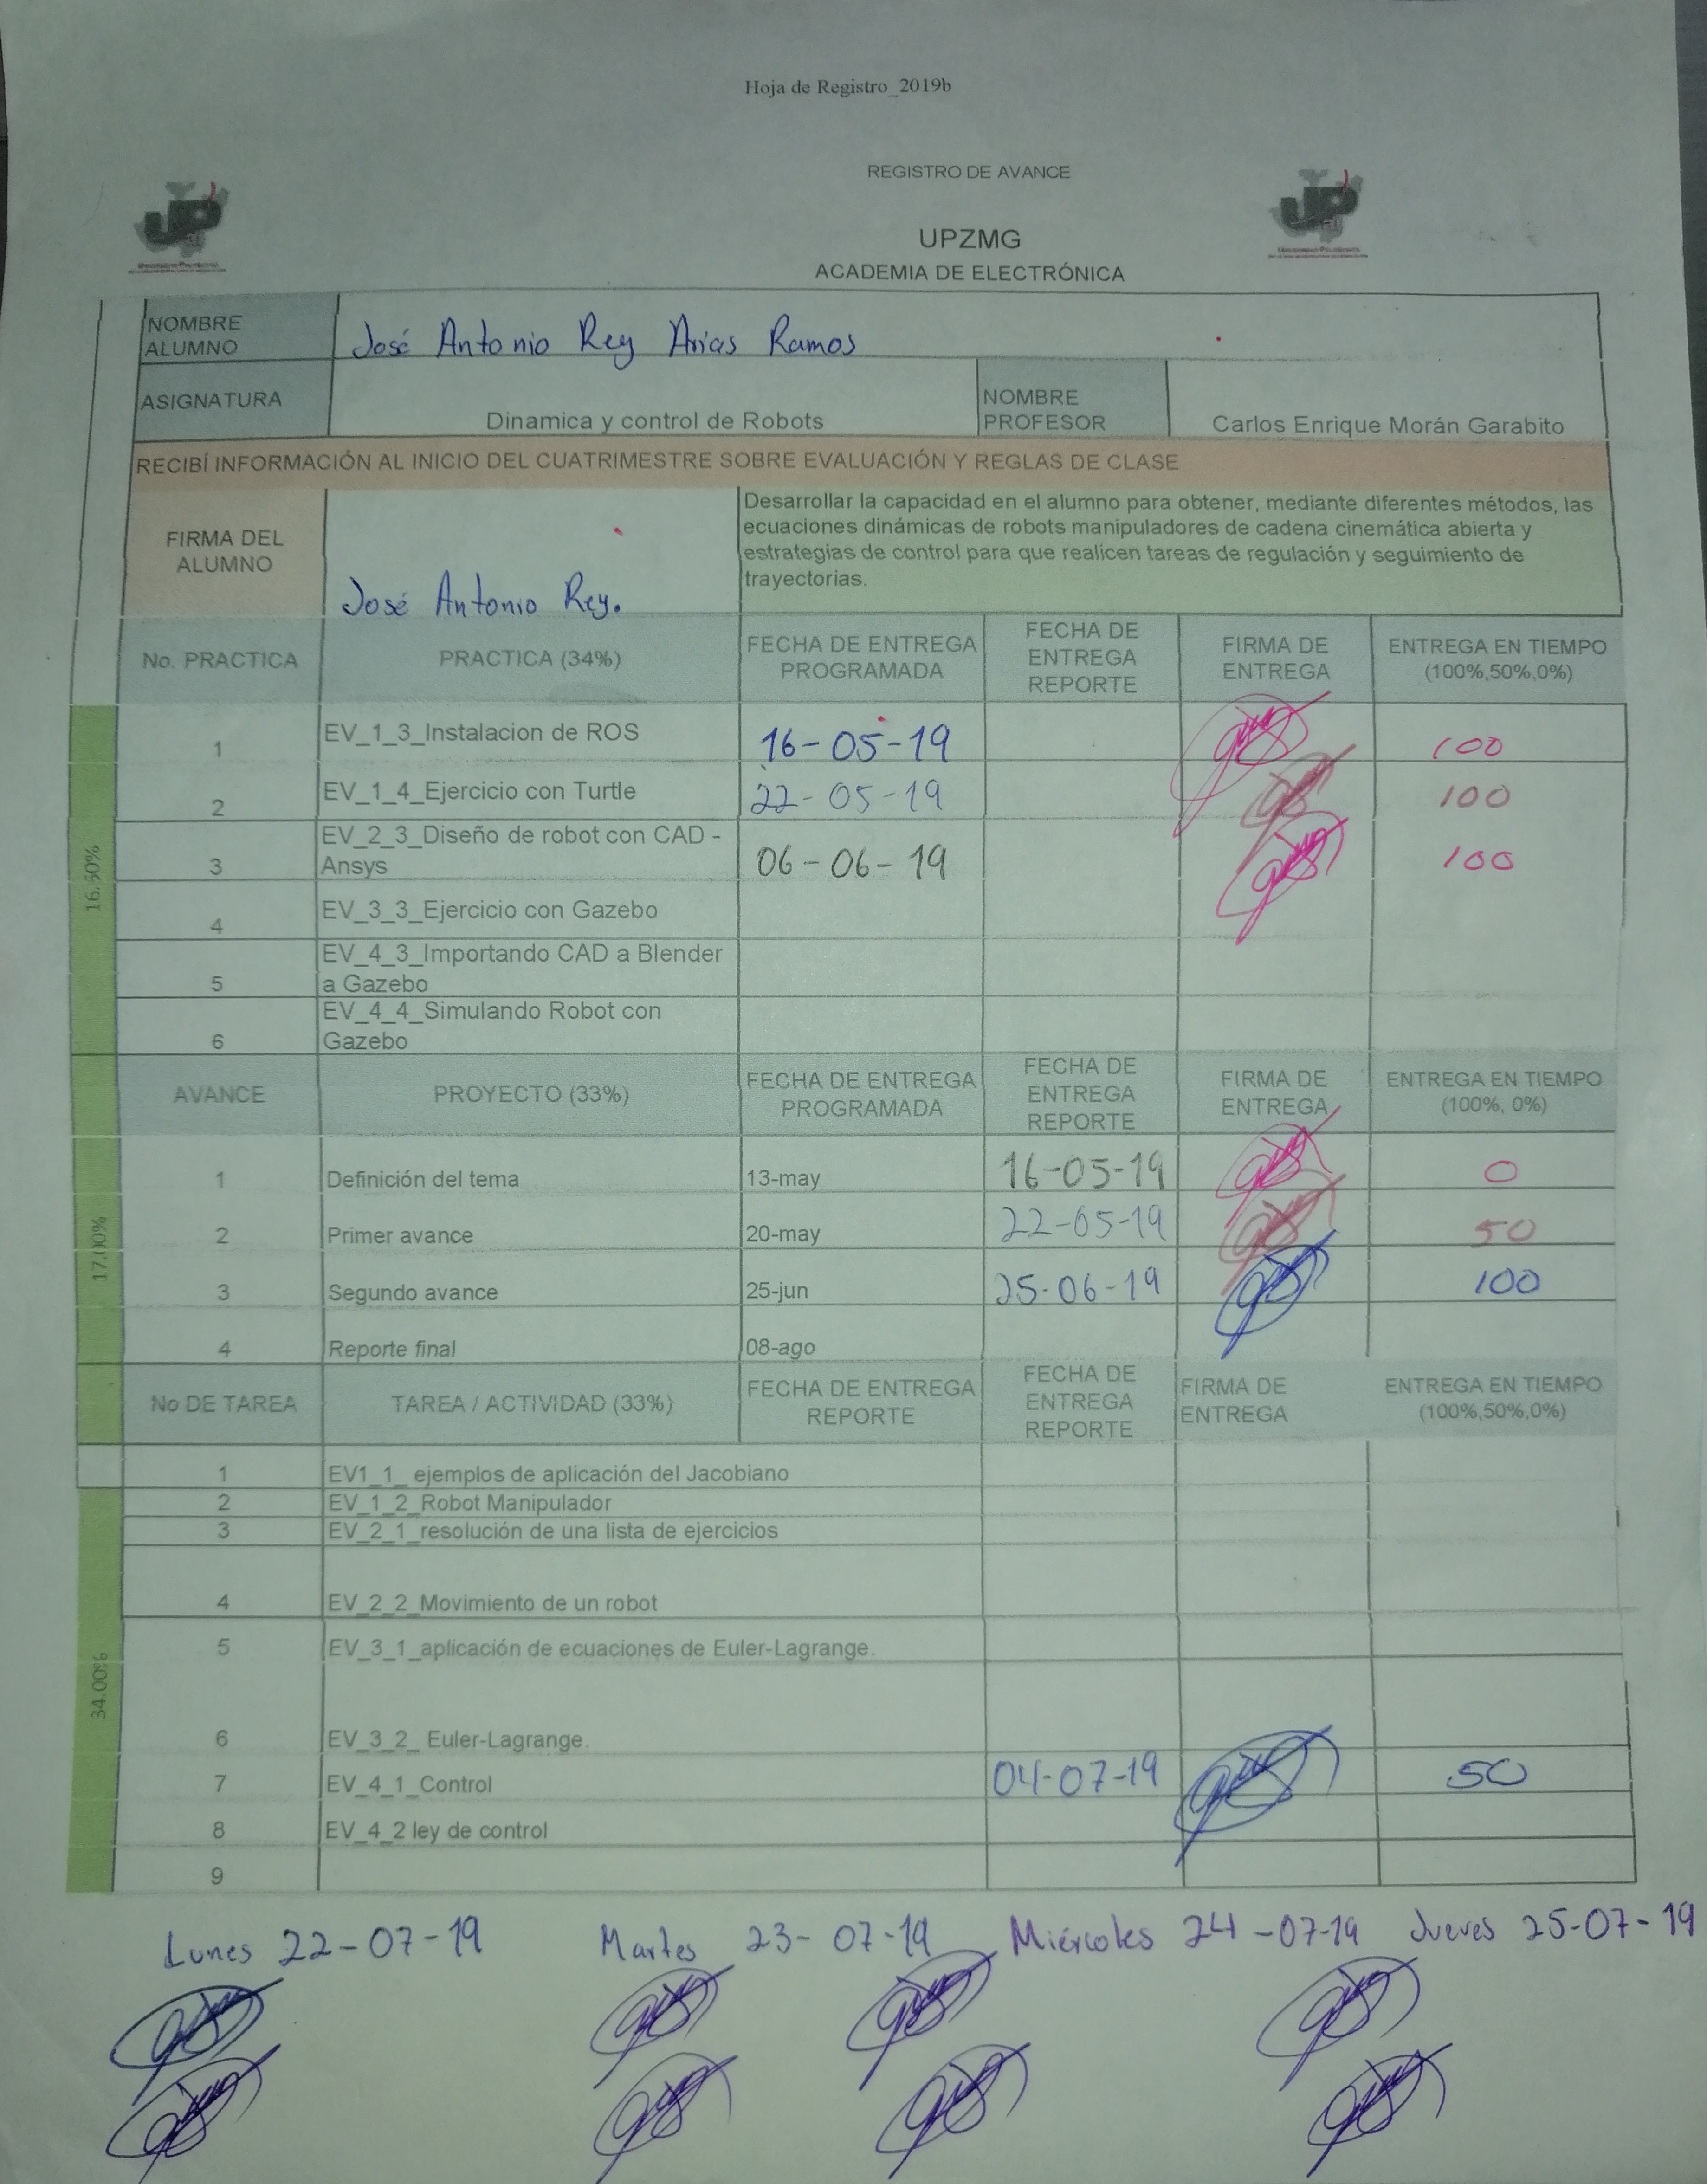 Hoja de Registro_2019b
REGISTRO DE AVANCE
UPZMG
ACADEMIA DE ELECTRÓNICA
NOMBRE ALUMNO José Antonio Rey Arias Ramos
ASIGNATURA Dinamica y control de Robots NOMBRE PROFESOR Carlos Enrique Morán Garabito
RECIBÍ INFORMACIÓN AL INICIO DEL CUATRIMESTRE SOBRE EVALUACIÓN Y REGLAS DE CLASE
FIRMA DEL ALUMNO José Antonio Rey.
Desarrollar la capacidad en el alumno para obtener, mediante diferentes métodos, las
ecuaciones dinámicas de robots manipuladores de cadena cinemática abierta y
estrategias de control para que realicen tareas de regulación y seguimiento de
trayectorias.
No. PRACTICA PRACTICA (34%) FECHA DE ENTREGA PROGRAMADA FECHA DE ENTREGA REPORTE FIRMA DE ENTREGA ENTREGA EN TIEMPO (100%,50%,0%)
16.50%
1 EV_1_3_Instalacion de ROS 16-05-19 100
2 EV_1_4_Ejercicio con Turtle 22-05-19 100
3 EV_2_3_Diseño de robot con CAD - Ansys 06-06-19 100
4 EV_3_3_Ejercicio con Gazebo
5 EV_4_3_Importando CAD a Blender a Gazebo
6 EV_4_4_Simulando Robot con Gazebo
AVANCE PROYECTO (33%) FECHA DE ENTREGA PROGRAMADA FECHA DE ENTREGA REPORTE FIRMA DE ENTREGA ENTREGA EN TIEMPO (100%, 0%)
17.00%
1 Definición del tema 13-may 16-05-19 0
2 Primer avance 20-may 22-05-19 50
3 Segundo avance 25-jun 25-06-19 100
4 Reporte final 08-ago
No DE TAREA TAREA / ACTIVIDAD (33%) FECHA DE ENTREGA REPORTE FECHA DE ENTREGA REPORTE FIRMA DE ENTREGA ENTREGA EN TIEMPO (100%,50%,0%)
34.00%
1 EV1_1_ ejemplos de aplicación del Jacobiano
2 EV_1_2_Robot Manipulador
3 EV_2_1_resolución de una lista de ejercicios
4 EV_2_2_Movimiento de un robot
5 EV_3_1_aplicación de ecuaciones de Euler-Lagrange.
6 EV_3_2_ Euler-Lagrange.
7 EV_4_1_Control 04-07-19 50
8 EV_4_2 ley de control
9
Lunes 22-07-19 Martes 23-07-19 Miércoles 24-07-19 Jueves 25-07-19